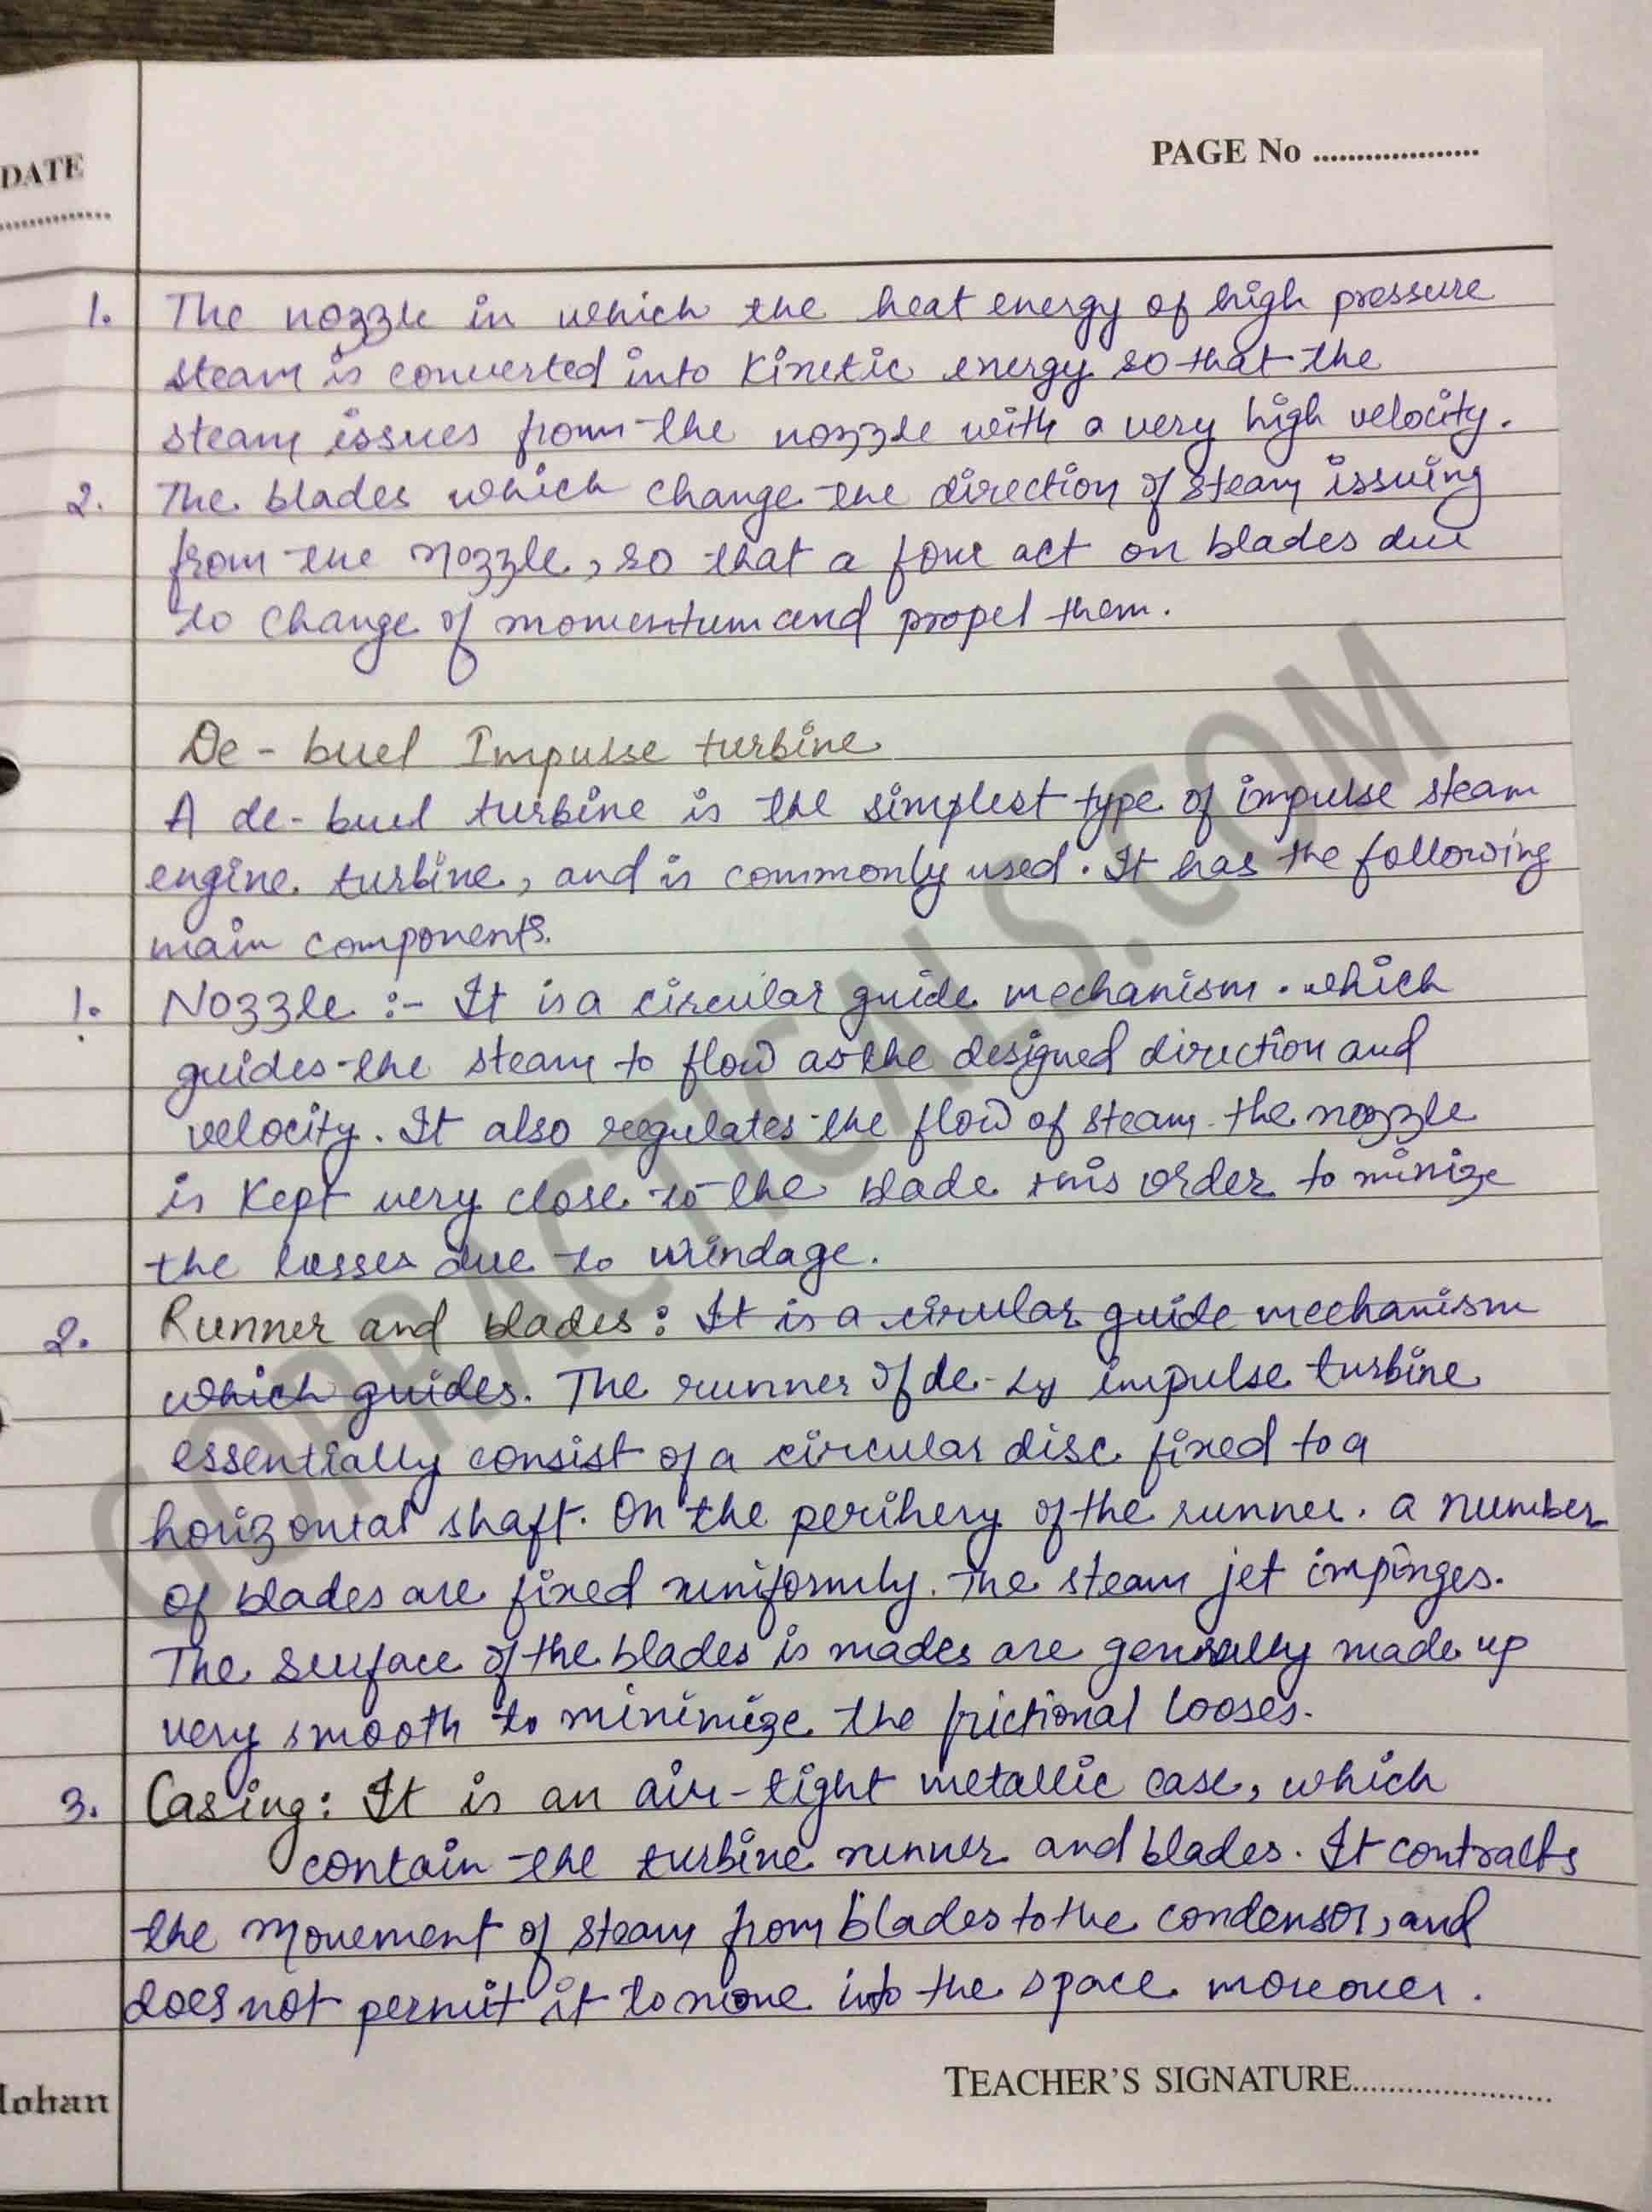 DATE
PAGE No ....................
..............
1. The nozzle in which the heat energy of high pressure
steam is converted into Kinetic energy so that the
steam issues from the nozzle with a very high velocity.
2. The blades which change the direction of steam issuing
from the nozzle, so that a force act on blades due
to change of momentum and propel them.
De-buel Impulse turbine
A de-buel turbine is the simplest type of impulse steam
engine turbine, and is commonly used. It has the following
main components.
1. Nozzle :- It is a circular guide mechanism. which
guides the steam to flow as the designed direction and
velocity. It also regulates the flow of steam. the nozzle
is Kept very close to the blade this order to minize
the losses due to windage.
2. Runner and blades: It is a circular guide mechanism
which guides. The runner of de-Ly impulse turbine
essentially consist of a circular disc fixed to a
horizontal shaft. On the perihery of the runner. a number
of blades are fixed uniformly. The steam jet impinges.
The surface of the blades is mades are generally made up
very smooth to minimize the frictional looses.
3. Casing: It is an air-tight metallic case, which
contain the turbine runner and blades. It contralts
the movement of steam from blades to the condensor, and
does not permit it to move into the space moreover.
TEACHER'S SIGNATURE.......................
lohan
GOPRACTICALS.COM